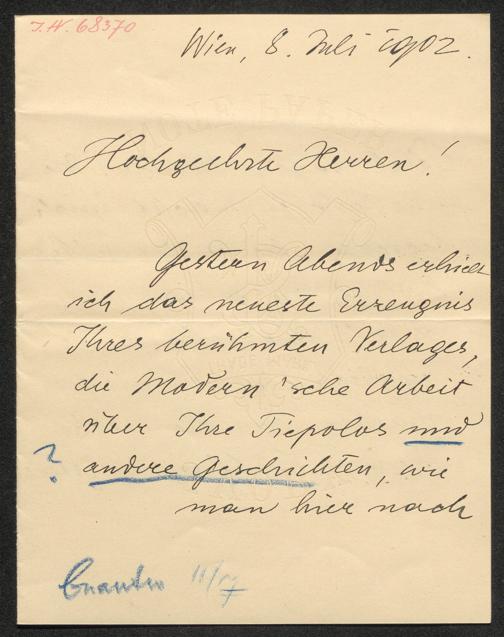 I.N. 68370
Wien, 8. Juli 1902.
Hochgeehrte Herren!
Gestern Abends erhielt
ich das neueste Erzeugnis
Ihres berühmten Verlages,
die Modern'sche Arbeit
über Ihre Tiepolos und
? andere Geschichten, wie
man hier nach
11/7